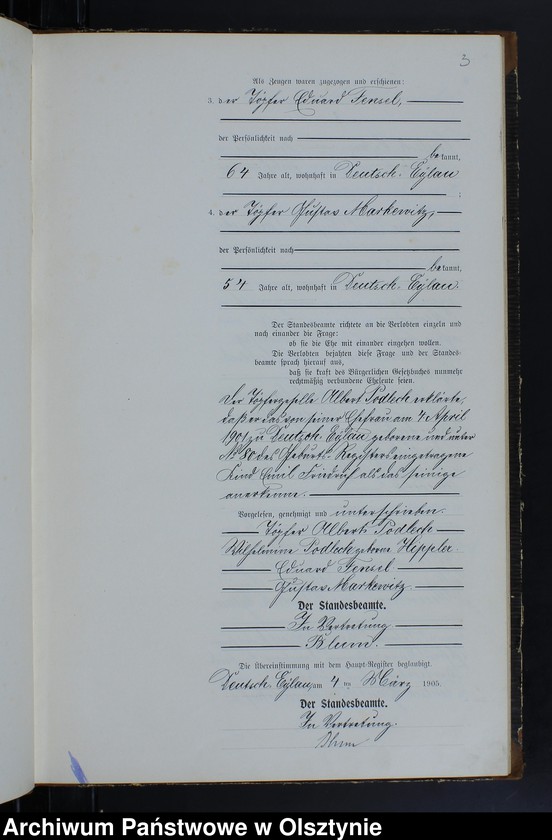 3
Als Zeugen waren zugezogen und erschienen:
3. der Töpfer Eduard Fensel,
der Persönlichkeit nach
bekannt,
64 Jahre alt, wohnhaft in Deutsch. Eylau
;
4. der Töpfer Gustav Markewitz,
der Persönlichkeit nach
bekannt,
54 Jahre alt, wohnhaft in Deutsch. Eylau
Der Standesbeamte richtete an die Verlobten einzeln und
nach einander die Frage:
ob sie die Ehe mit einander eingehen wollen.
Die Verlobten bejahten diese Frage und der Standes-
beamte sprach hierauf aus,
daß sie kraft des Bürgerlichen Gesetzbuches nunmehr
rechtmäßig verbundene Eheleute seien.
Der Töpfergeselle Albert Podlech erklärte,
daß er das von seiner Ehefrau am 4. April
1901 zu Deutsch. Eylau geborene und unter
No 80 des Geburts-Registers eingetragene
Kind Emil Friedrich als das seinige
anerkenne.
Vorgelesen, genehmigt und unterschrieben.
Töpfer Albert Podlech
Wilhelmine Podlech geborne Heppler
Eduard Fensel
Gustav Markewitz
Der Standesbeamte.
In Vertretung.
Blum.
Die Übereinstimmung mit dem Haupt-Register beglaubigt.
Deutsch. Eylau, am 4 ten März 1905.
Der Standesbeamte.
In Vertretung.
Blum
Archiwum Państwowe w Olsztynie